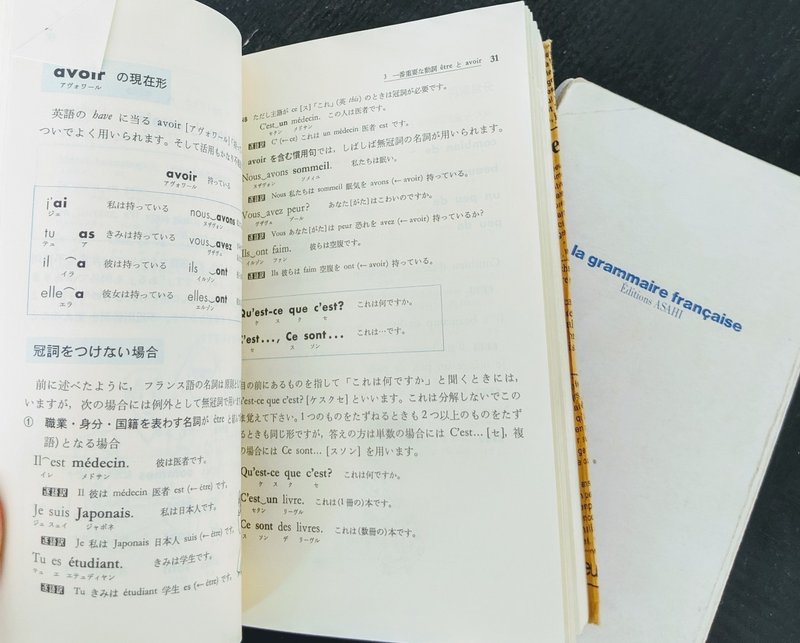 avoir の現在形
アヴォワール
英語の have に当る avoir [アヴォワール]
ついでよく用いられます。そして活用もかなり
avoir 持っている
アヴォワール
j'ai 私は持っている nous‿avons
ジェ ヌザヴォン
tu as きみは持っている vous‿avez
テュ ア ヴザヴェ
il⁀a 彼は持っている ils‿ont
イラ イルゾン
elle⁀a 彼女は持っている elles‿ont
エラ エルゾン
冠詞をつけない場合
前に述べたように, フランス語の名詞は原則
いますが, 次の場合には例外として無冠詞で用い
① 職業・身分・国籍を表わす名詞が être と
語)となる場合
Il⁀est médecin. 彼は医者です。
イレ メドサン
逐語訳 Il 彼は médecin 医者 est (←être) です。
Je suis Japonais. 私は日本人です。
ジュ スュイ ジャポネ
逐語訳 Je 私は Japonais 日本人 suis (←être) です。
Tu es étudiant. きみは学生です。
テュ エ エテュディヤン
逐語訳 Tu きみは étudiant 学生 es (←être) です。
3 一番重要な動詞 être と avoir 31
ただし主題が ce [ス]「これ」(英 this) のときは冠詞が必要です。
C'est‿un médecin. この人は医者です。
セタン メドサン
逐語訳 C' (←ce) これは un médecin 医者 est です。
avoir を含む慣用句では, しばしば無冠詞の名詞が用いられます。
Nous‿avons sommeil. 私たちは眠い。
ヌザヴォン ソメイユ
逐語訳 Nous 私たちは sommeil 眠気を avons (←avoir) 持っている。
Vous‿avez peur? あなた[がた]はこわいのですか。
ヴザヴェ プール
逐語訳 Vous あなた[がた]は peur 恐れを avez (←avoir) 持っているか?
Ils‿ont faim. 彼らは空腹です。
イルゾン ファン
逐語訳 Ils 彼らは faim 空腹を ont (←avoir) 持っている。
Qu'est-ce que c'est? これは何ですか。
ケ ス ク セ
C'est..., Ce sont... これは…です。
セ ス ソン
目の前にあるものを指して「これは何ですか」と聞くときには,
est-ce que c'est? [ケスクセ]といいます。これは分解しないでこの
覚えて下さい。1つのものをたずねるときも2つ以上のものをたず
るときも同じ形ですが, 答えの方は単数の場合には C'est... [セ], 複
の場合には Ce sont... [スソン] を用います。
Qu'est-ce que c'est? これは何ですか。
ケ ス ク セ
C'est‿un livre. これは(1冊の)本です。
セタン リーヴル
Ce sont des livres. これは(数冊の)本です。
ス ソン デ リーヴル
la grammaire française
Éditions ASAHI